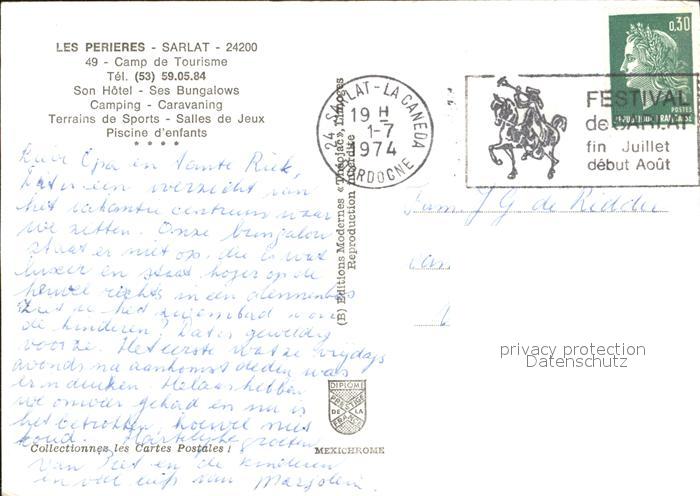 LES PERIERES - SARLAT - 24200
49 - Camp de Tourisme
Tél. (53) 59.05.84
Son Hôtel - Ses Bungalows
Camping - Caravaning
Terrains de Sports - Salles de Jeux
Piscine d'enfants
* * * *
Opa en Tante Riek,
Dat is een overzicht van
het vakantie centrum waar
we zetten. Onze bungalow
staat er niet op, die is wat
luxer en staat hoger op de
heuvel rechts in een dennenbos
Ziet U het zwembad voor
de kinderen? Dat is geweldig
voor ze. Het eerste wat ze vrijdags
avonds na aankomst deden was
erin duiken. Helaas hebben
we onweer gehad en nu is
het betrokken, hoewel niet
koud. Hartelijke groeten
Collectionnez les Cartes Postales !
van Piet en de kinderen
en veel liefs van Marjolein.
(B) Editions Modernes «Théojac», Limoges
Reproduction interdite
24 SARLAT-LA CANEDA
19 H
1-7
1974
DORDOGNE
FESTIVAL
de SARLAT
fin Juillet
début Août
0,30
POSTES
REPUBLIQUE FRANCAISE
Fam. J G de Ridder
privacy protection
Datenschutz
DIPLOME
PRESTIGE
DE LA
FRANCE
MEXICHROME